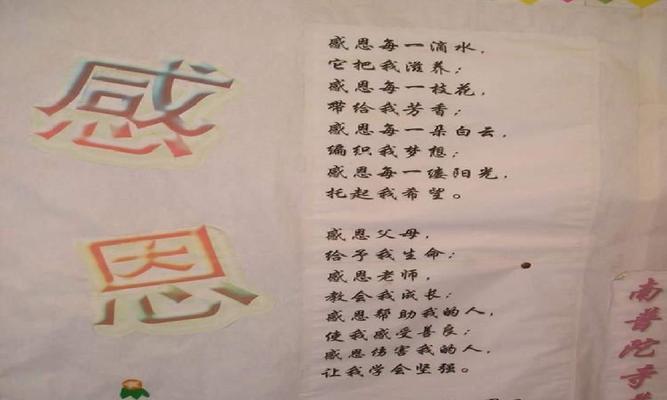 感恩
感恩每一滴水，
它把我滋养；
感恩每一枝花，
带给我芳香；
感恩每一朵白云，
编织我梦想；
感恩每一缕阳光，
托起我希望。
感恩父母，
给予我生命；
感恩老师，
教会我成长；
感恩帮助我的人，
使我感受善良；
感恩伤害我的人，
让我学会坚强。
南普陀寺